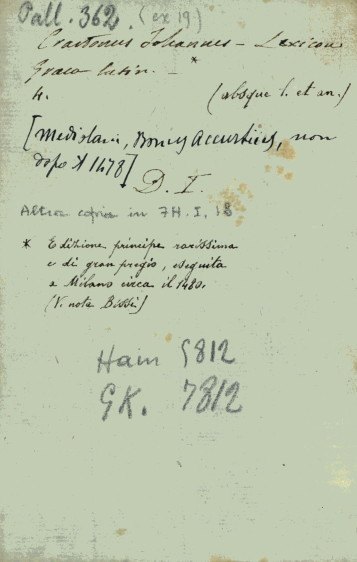 Pall. 362. (ex 19)
Crastonus Iohannes – Lexicon
graeco latin. – *
4. (absque l. et an.)
[Mediolani, Bonus Accursius, non
dopo il 1478]
D. I.
Altra copia in 7H. I, 18
* Edizione principe rarissima
e di gran pregio, eseguita
a Milano circa il 1480.
(V. nota Bissi)
Hain 5812
GK. 7812